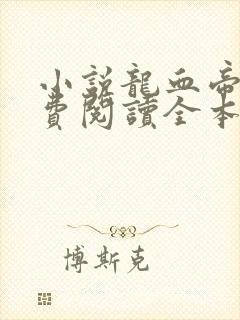 小説龍血帝
費閱讀全本
博斯克